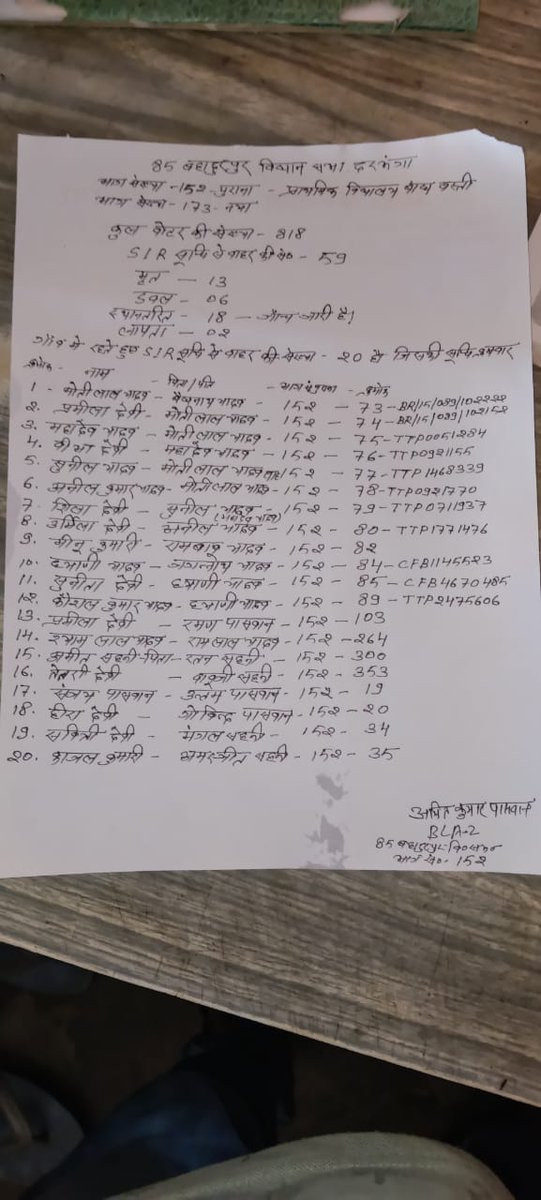 85 बहादुरपुर विधान सभा दरभंगा
भाग संख्या - 152 - पुराना - प्राथमिक विद्यालय
भाग संख्या - 173 - नया
कुल वोटर की संख्या - 818
SIR सूची से बाहर की सं० - 59
मृत - 13
डबल - 06
स्थानांतरित - 18 - जाँच जारी है।
लापता - 02
गाँव में रहते हुए SIR सूची से बाहर की संख्या - 20 है जिसकी सूची इस प्रकार
क्रमांक - नाम - पिता/पति - भाग संख्या - क्रमांक
1. मोती लाल यादव - यादव - 152 - 73 - BR/15/089/102222
2. प्रमीला देवी - मोती लाल यादव - 152 - 74 - BR/15/089/102152
3. महादेव यादव - मोती लाल यादव - 152 - 75 - TTP0051284
4. देवी - महादेव यादव - 152 - 76 - TTP0921155
5. सुनील यादव - मोती लाल यादव - 152 - 77 - TTP1468339
6. अनील कुमार यादव - मोती लाल यादव - 152 - 78 - TTP0921770
7. शिला देवी - सुनील यादव - 152 - 79 - TTP0711937
8. उर्मिला देवी - अनील यादव - 152 - 80 - TTP1771476
9. कुमारी - यादव - 152 - 82
10. यादव - यादव - 152 - 84 - CFB1145523
11. सुनीता देवी - यादव - 152 - 85 - CFB4670485
12. कौशल कुमार यादव - यादव - 152 - 89 - TTP2475606
13. प्रमीला देवी - रमण पासवान - 152 - 103
14. श्याम लाल यादव - राम लाल यादव - 152 - 264
15. अमीत सहनी - पिता - रतन सहनी - 152 - 300
16. देवी - सहनी - 152 - 353
17. संजय पासवान - उत्तम पासवान - 152 - 19
18. हीरा देवी - गोविन्द पासवान - 152 - 20
19. सवित्री देवी - मंगल सहनी - 152 - 34
20. काजल कुमारी - अमरजीत सहनी - 152 - 35
अमित कुमार पासवान
BLA-2
85 बहादुरपुर
भाग सं० - 152